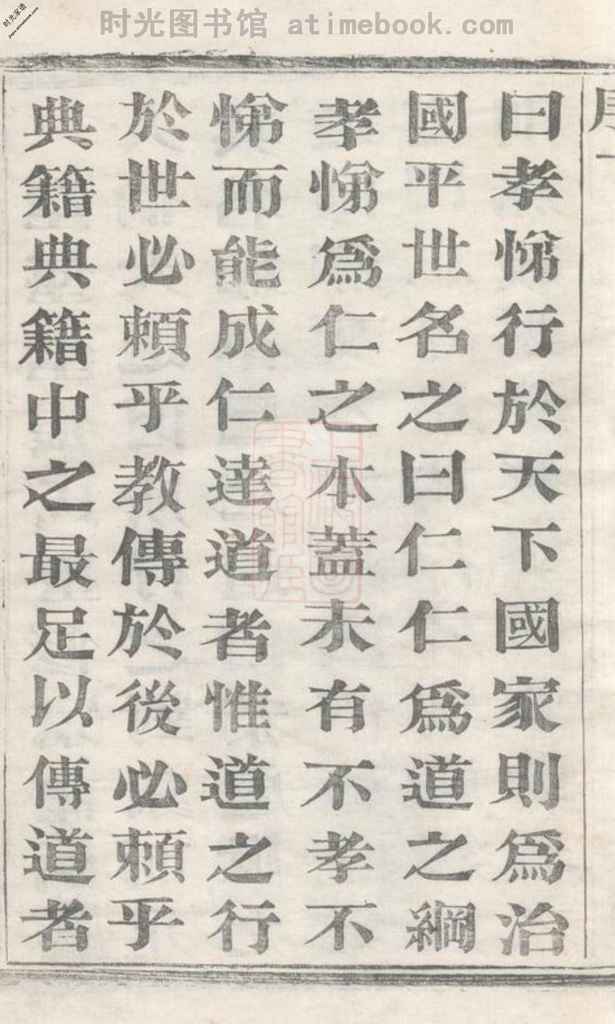 时光图书馆 atimebook.com
时光家谱
www.atimebook.com
曰孝悌行於天下國家則爲治
國平世名之曰仁仁爲道之綱
孝悌爲仁之本蓋未有不孝不
悌而能成仁達道者惟道之行
於世必頼乎教傳於後必頼乎
典籍典籍中之最足以傳道者